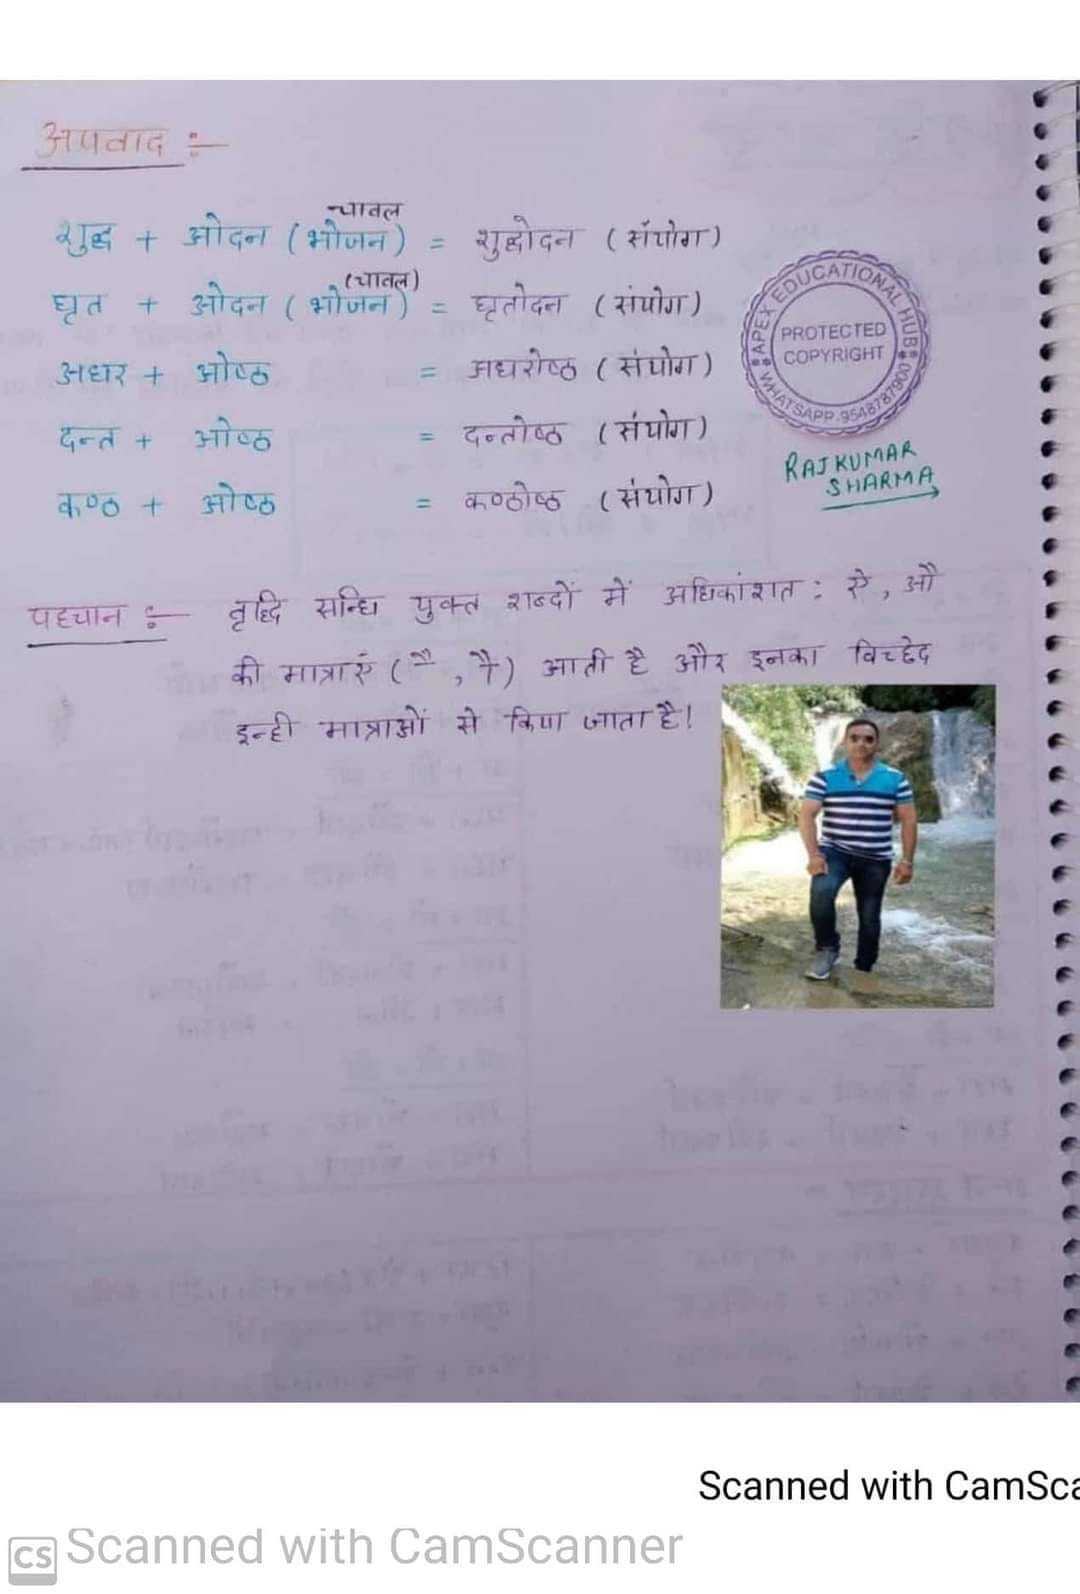 अपवाद :-
शुद्ध + ओदन (भोजन) चावल = शुद्धोदन (संयोग)
घृत + ओदन (भोजन) (चावल) = घृतोदन (संयोग)
अधर + ओष्ठ = अधरोष्ठ (संयोग)
दन्त + ओष्ठ = दन्तोष्ठ (संयोग)
कण्ठ + ओष्ठ = कण्ठोष्ठ (संयोग)
APEX EDUCATIONAL HUB
PROTECTED
COPYRIGHT
WHATSAPP-9548787900
RAJKUMAR
SHARMA
पहचान :- वृद्धि सन्धि युक्त शब्दों में अधिकांशत: ऐ, औ
की मात्राएं ( ै , ौ ) आती है और इनका विच्छेद
इन्ही मात्राओं से किया जाता है!
Scanned with CamSca
CS Scanned with CamScanner